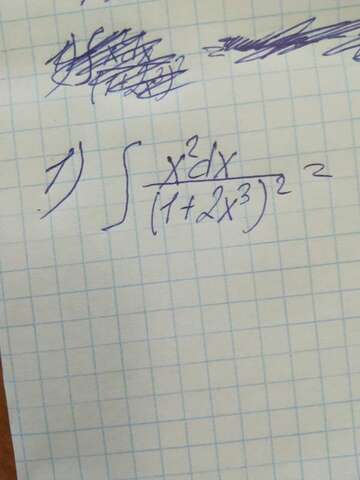 1) ∫ x²dx / (1+2x³)² =